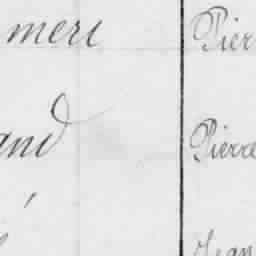 meri Pier
and Pierre
Jean